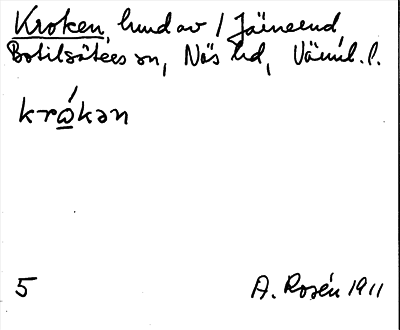 Kroken, hund av / Jäineend,
Botilsäters sn, Näs hd, Värml. l.
kråkən
5 A. Rosén 1911